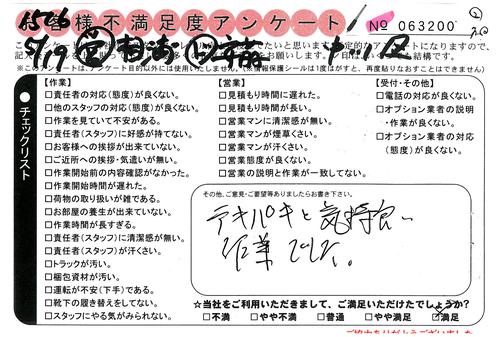 お客様不満足度アンケート
No 063200
チェックリスト
【作業】
□責任者の対応(態度)が良くない。
□他のスタッフの対応(態度)が良くない。
□作業を見ていて不安がある。
□責任者(スタッフ)に好感が持てない。
□お客様への挨拶が出来ていない。
□ご近所への挨拶・気遣いが無い。
□作業開始前の内容確認がなかった。
□作業開始時間が遅れた。
□荷物の取り扱いが雑である。
□お部屋の養生が出来ていない。
□作業時間が長すぎる。
□責任者(スタッフ)に清潔感が無い。
□責任者(スタッフ)が汗くさい。
□トラックが汚い。
□梱包資材が汚い。
□運転が不安(下手)である。
□靴下の履き替えをしてない。
□スタッフにやる気がみられない。
【営業】
□見積もり時間に遅れた。
□見積もり時間が長い。
□営業マンに清潔感が無い。
□営業マンが煙草くさい。
□営業マンが汗くさい。
□営業態度が良くない。
□営業の説明と作業が一致してない。
【受付・その他】
□電話の対応が良くない。
□オプション業者の説明・作業が良くない。
□オプション業者の対応(態度)が良くない。
その他、ご意見・ご要望等ありましたらお書き下さい。
テキパキと気持良い
作業でした。
☆当社をご利用いただきまして、ご満足いただけたでしょうか?
□不満 □やや不満 □普通 □やや満足 □満足